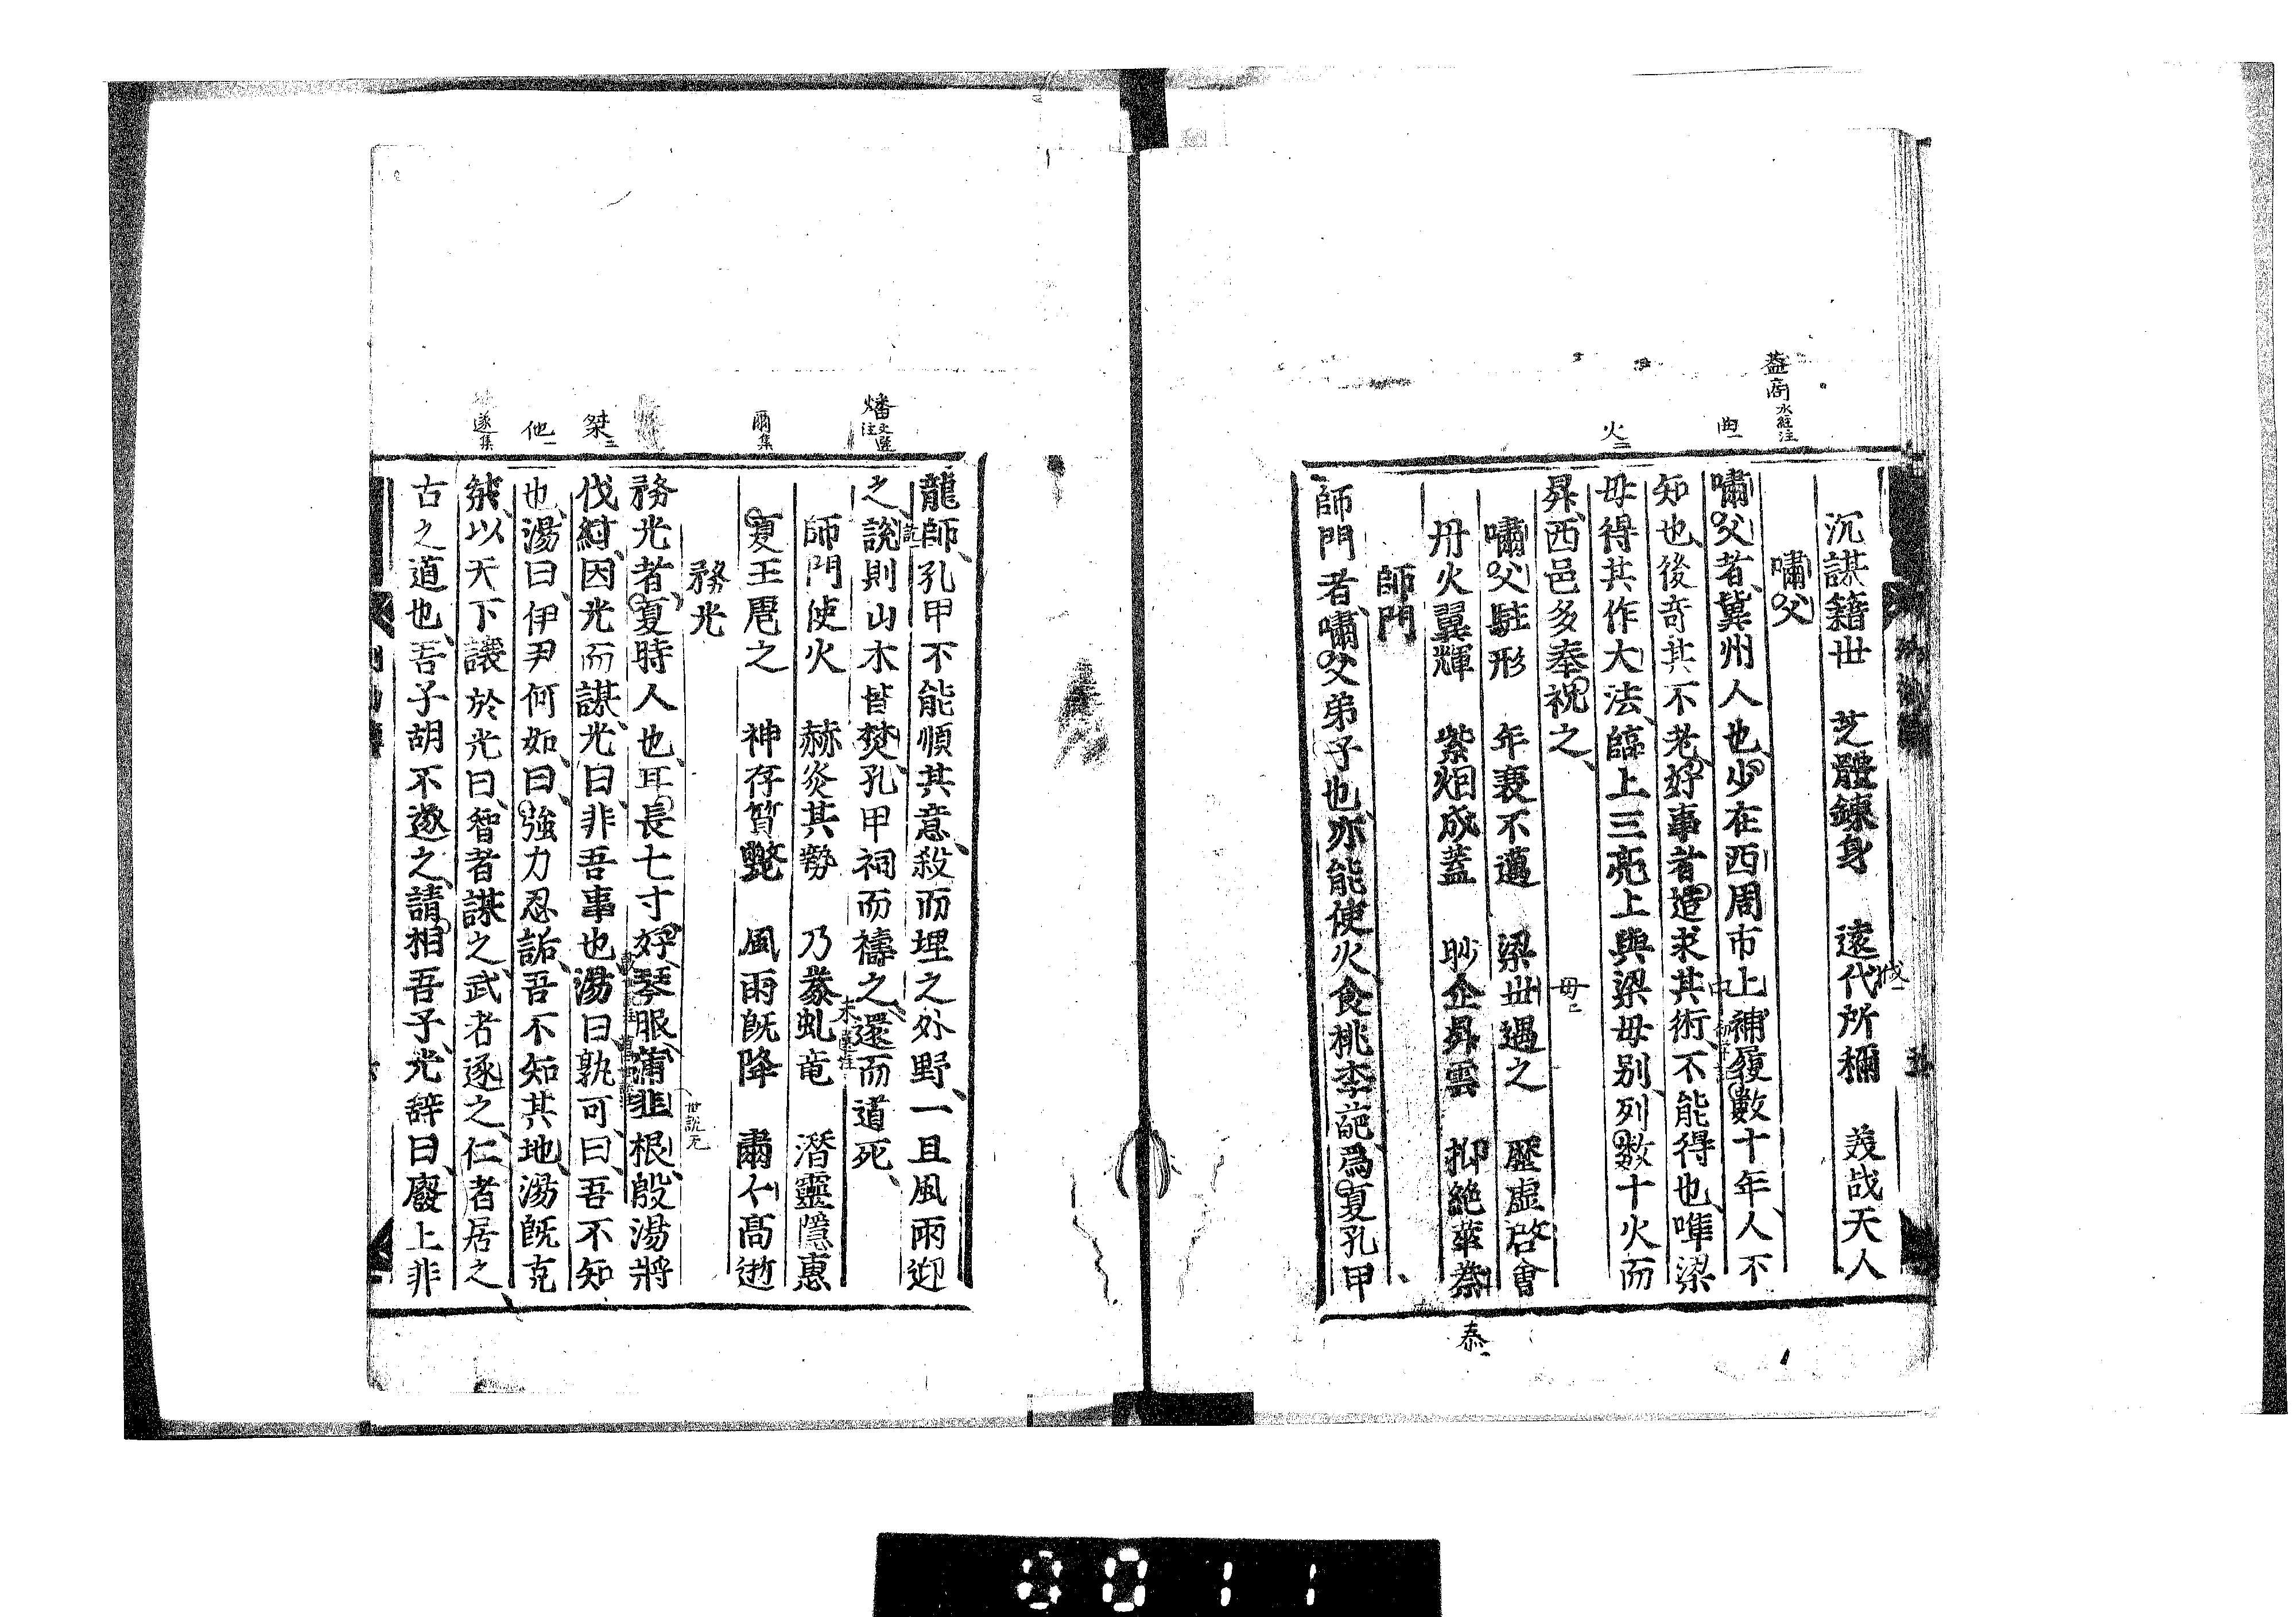 沉謀籍世　芝體鍊身　遠代所稱　美哉天人
嘯父
嘯父者冀州人也少在西周市上補履數十年人不
知也後奇其不老好事者造求其術不能得也唯梁
母得其作火法臨上三亮上與梁母别列数十火而
昇西邑多奉祀之
嘯父駐形　年衰不邁　梁世遇之　歷虛啓會
丹火翼輝　紫烟成蓋　眇企昇雲　抑絶華泰
師門
師門者嘯父弟子也亦能使火食桃李葩爲夏孔甲
龍師孔甲不能順其意殺而埋之外野一旦風雨迎
之說則山木皆焚孔甲祠而禱之還而道死
師門使火　赫炎其勢　乃豢虬竜　潜靈隱惠
夏王虐之　神存質斃　風雨既降　肅尒高逝
務光
務光者夏時人也耳長七寸好琴服蒲韭根殷湯將
伐紂因光而謀光曰非吾事也湯曰孰可曰吾不知
也湯曰伊尹何如曰強力忍詬吾不知其地湯既克
桀以天下讓於光曰智者謀之武者逐之仁者居之
古之道也吾子胡不遂之請相吾子光辞曰廢上非
益商水經注
曲一
火二
母
泰一
燔文選注
爾集
桀二
他一
遂集
世説无
0011